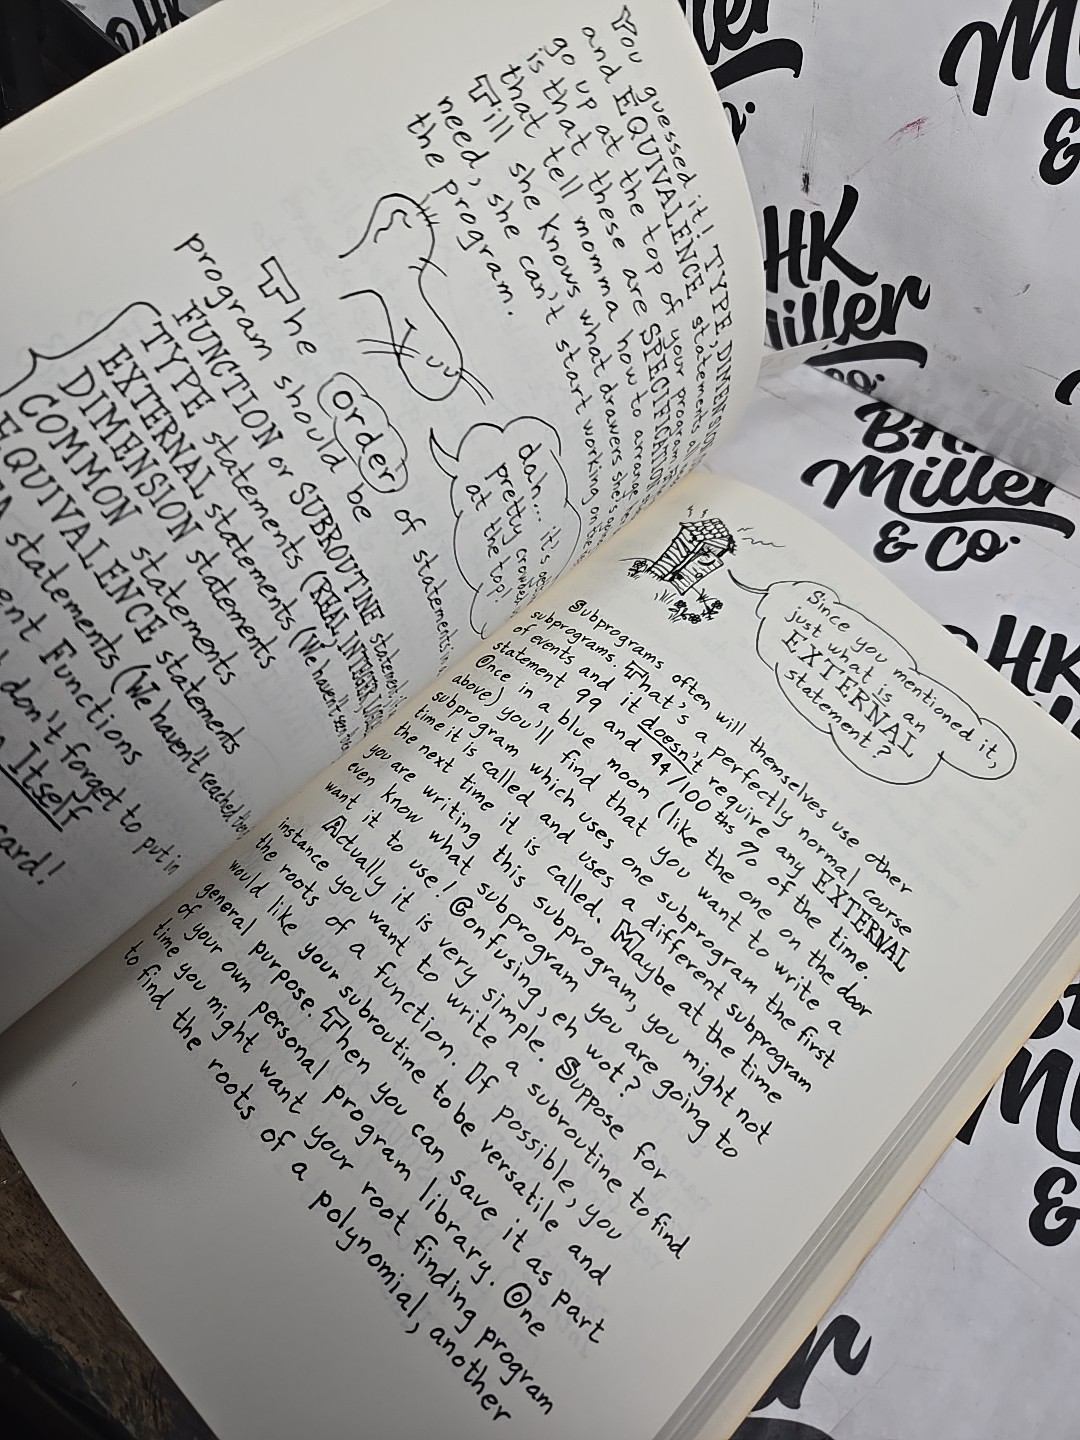 You guessed it! TYPE, DIMENSION
and EQUIVALENCE statements all
go up at the top of your program
is that these are SPECIFICATION
that tell momma how to arrange
Till she knows what drawers she's
need, she can't start working on the
the program.
dah... it's
pretty crowded
at the top!
The order of statements in
program should be
FUNCTION or SUBROUTINE statement
TYPE statements (REAL, INTEGER,
EXTERNAL statements (We haven't
DIMENSION statements
COMMON statements
EQUIVALENCE statements
statements (We haven't reached
Functions
don't forget to put in
Itself
card!
Since you mentioned it,
just what is an
EXTERNAL
statement?
Subprograms often will themselves use other
subprograms. That's a perfectly normal course
of events and it doesn't require any EXTERNAL
statement 99 and 44/100 ths % of the time.
Once in a blue moon (like the one on the door
above) you'll find that you want to write a
subprogram which uses one subprogram the first
time it is called and uses a different subprogram
the next time it is called. Maybe at the time
you are writing this subprogram, you might not
even know what subprogram you are going to
want it to use! Confusing, eh wot?
Actually it is very simple. Suppose for
instance you want to write a subroutine to find
the roots of a function. If possible, you
would like your subroutine to be versatile and
general purpose. Then you can save it as part
of your own personal program library. One
time you might want your root finding program
to find the roots of a polynomial, another
HK
ller
&
Co.
BHK
Miller
& Co.
BHK
Miller
& Co.
HK
&